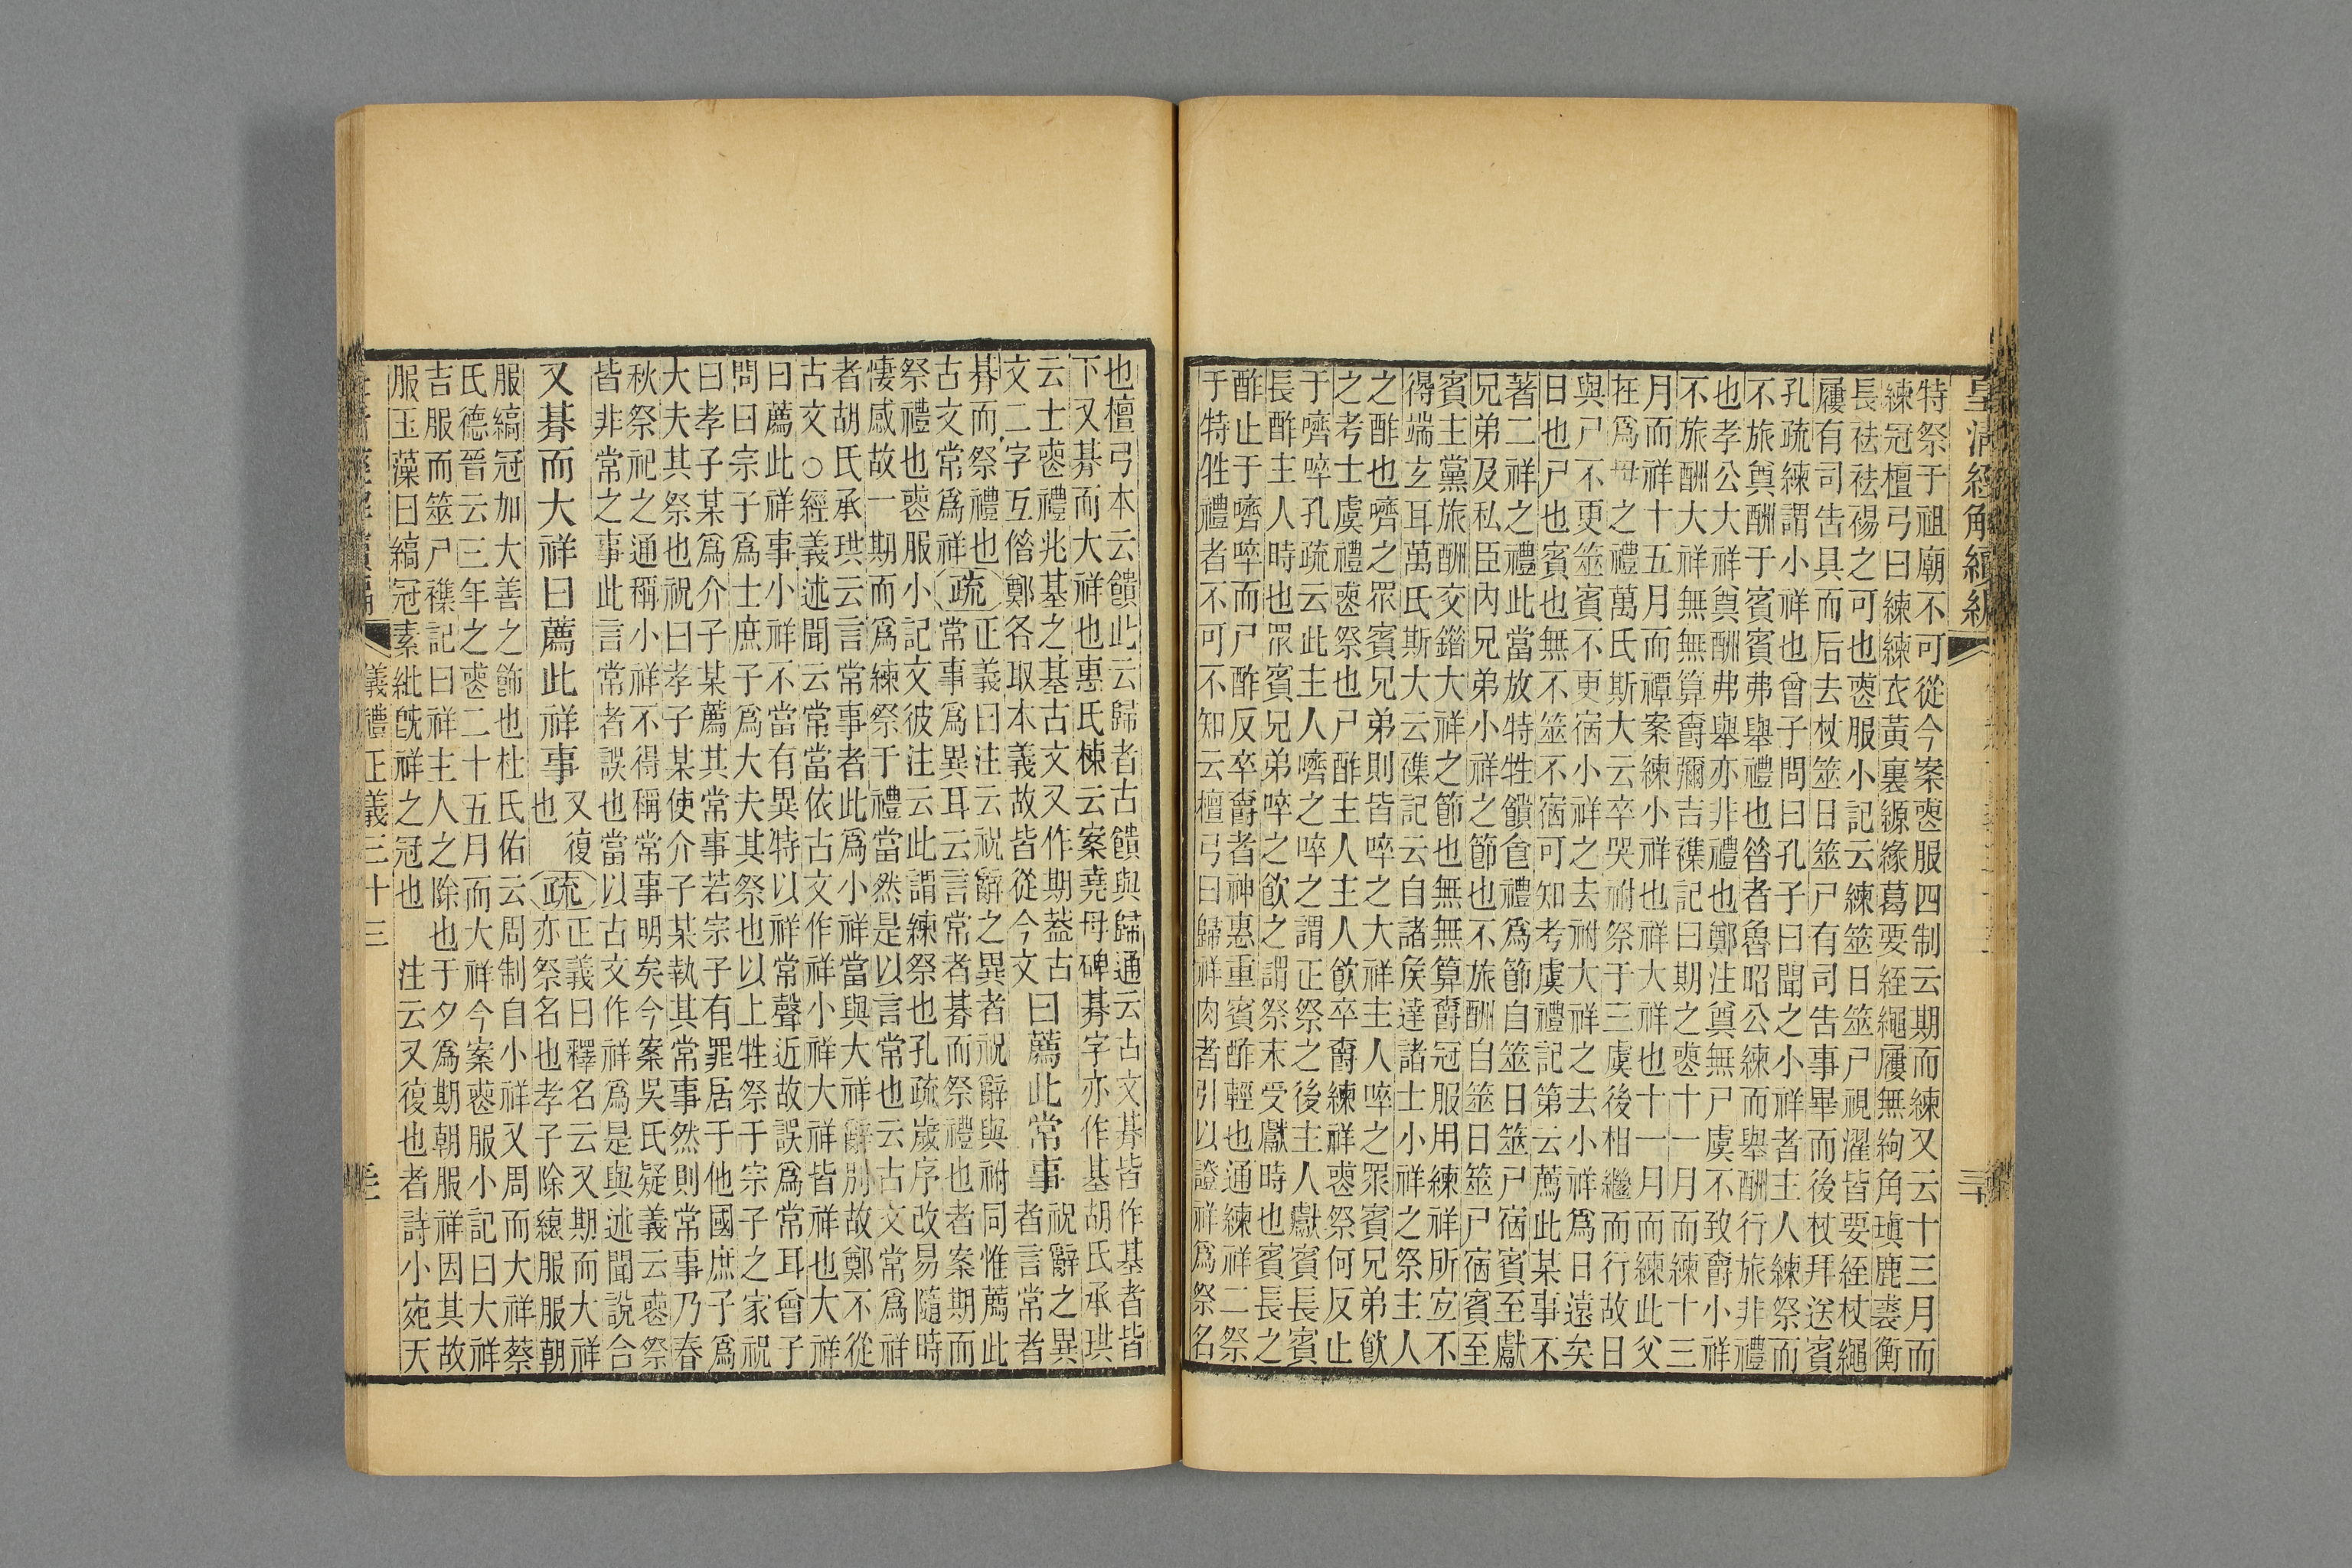 皇清經解續編
特祭于祖廟不可從今案喪服四制云期而練又云十三月而
練冠檀弓曰練練衣黃裏縓緣葛要絰繩屨無絇角瑱鹿裘衡
長袪袪裼之可也喪服小記云練筮日筮尸視濯皆要絰杖繩
屨有司告具而后去杖筮日筮尸有司告事畢而後杖拜送賓
孔疏練謂小祥也曾子問曰孔子曰聞之小祥者主人練祭而
不旅奠酬于賓賓弗舉禮也昝者魯昭公練而舉酬行旅非禮
也孝公大祥奠酬弗舉亦非禮也鄭注奠無尸虞不致爵小祥
不旅酬大祥無無算爵彌吉襍記曰期之喪十一月而練十三
月而祥十五月而禫案練小祥也祥大祥也十一月而練此父
在爲母之禮萬氏斯大云卒哭祔祭于三虞後相繼而行故日
與尸不更筮賓不更宿小祥之去祔大祥之去小祥爲日遠矣
日也尸也賓也無不筮不宿可知考虞禮記第云薦此某事不
著二祥之禮此當放特牲饋食禮爲節自筮日筮尸宿賓至獻
兄弟及私臣內兄弟小祥之節也不旅酬自筮日筮尸宿賓至
賓主黨旅酬交錯大祥之節也無無算爵冠服用練祥所宐不
得端玄耳萬氏斯大云襍記云自諸侯達諸士小祥之祭主人
之酢也嚌之眾賓兄弟則皆啐之大祥主人啐之眾賓兄弟飲
之考士虞禮喪祭也尸酢主人主人飲卒爵練祥喪祭何反止
于嚌啐孔疏云此主人嚌之啐之謂正祭之後主人獻賓長賓
長酢主人時也眾賓兄弟啐之飲之謂祭末受獻時也賓長之
酢止于嚌啐而尸酢反卒爵者神惠重賓酢輕也通練祥二祭
于特牲禮者不可不知云檀弓曰歸祥肉者引以證祥爲祭名
也檀弓本云饋此云歸者古饋與歸通云古文朞皆作基者皆
下又朞而大祥也惠氏棟云案堯母碑朞字亦作基胡氏承珙
云士喪禮兆基之基古文又作期蓋古
文二字互偕鄭各取本義故皆從今文曰薦此常事祝辭之異者言常者
朞而祭禮也疏正義曰注云祝辭之異者祝辭與祔同惟薦此
古文常爲祥常事爲異耳云言常者朞而祭禮也者案期而
祭禮也喪服小記文彼注云此謂練祭也孔疏歲序改易隨時
悽感故一期而爲練祭于禮當然是以言常也云古文常爲祥
者胡氏承珙云言常事者此爲小祥當與大祥辭別故鄭不從
古文○經義述聞云常當依古文作祥小祥大祥皆祥也大祥
曰薦此祥事小祥不當有異特以祥常聲近故誤爲常耳曾子
問曰宗子爲士庶子爲大夫其祭也以上牲祭于宗子之家祝
曰孝子某爲介子某薦其常事若宗子有罪居于他國庶子爲
大夫其祭也祝曰孝子某使介子某執其常事然則常事乃春
秋祭祀之通稱小祥不得稱常事明矣今案吳氏疑義云喪祭
皆非常之事此言常者誤也當以古文作祥爲是與述聞說合
又朞而大祥曰薦此祥事又復也疏正義曰釋名云又期而大祥亦祭名也孝子除縗服服朝
服縞冠加大善之飾也杜氏佑云周制自小祥又周而大祥蔡
氏德晉云三年之喪二十五月而大祥今案喪服小記曰大祥
吉服而筮尸襍記曰祥主人之除也于夕爲期朝服祥因其故
服玉藻曰縞冠素紕旣祥之冠也 注云又復也者詩小宛天
儀禮正義三十三